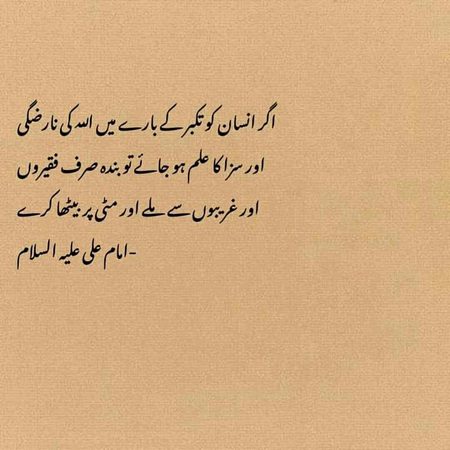 اگر انسان کو تکبر کے بارے میں اللہ کی نارضگی
اور سزا کا علم ہو جائے تو بندہ صرف فقیروں
اور غریبوں سے ملے اور مٹی پر بیٹھا کرے
-امام علی علیہ السلام